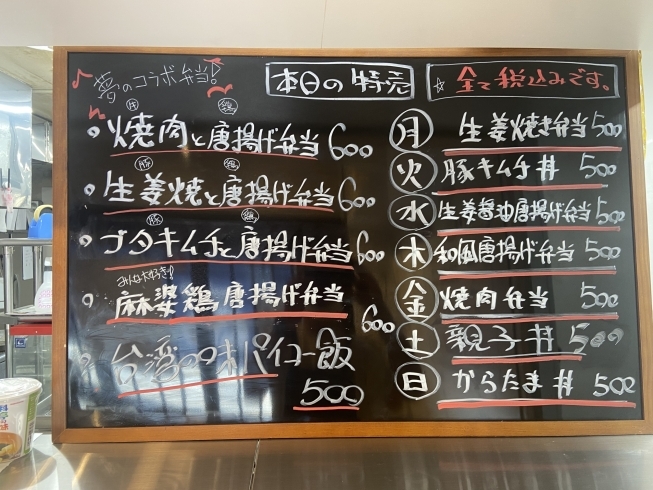 夢のコラボ弁当!
本日の特売
☆全て税込みです。
焼肉と唐揚げ弁当 600
豚 鶏
生姜焼と唐揚げ弁当 600
豚 鶏
ブタキムチと唐揚げ弁当 600
みんな大好き!
麻婆鶏唐揚げ弁当 600
台湾の味パイコー飯
500
月 生姜焼き弁当 500
火 豚キムチ丼 500
水 生姜醤油唐揚げ弁当 500
木 和風唐揚げ弁当 500
金 焼肉弁当 500
土 親子丼 500
日 からたま丼 500